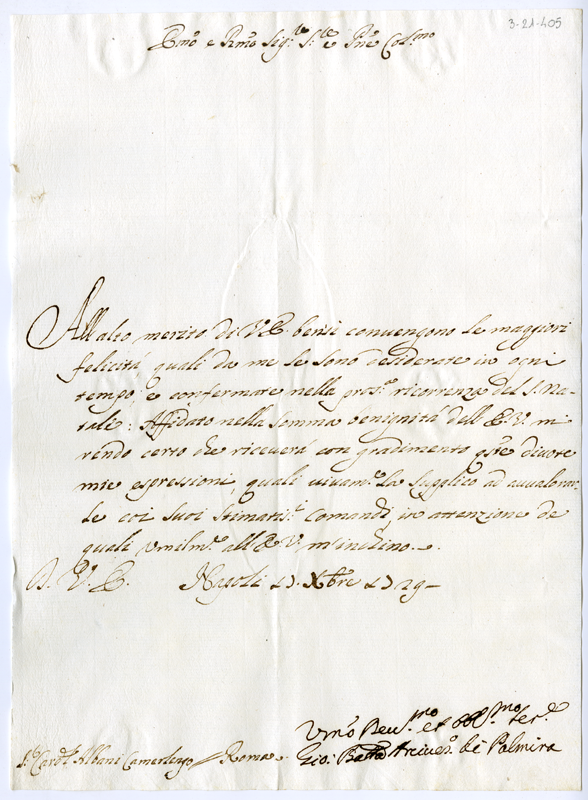 3-21-405
Emo e Rmo Sig.re S.re e Pne Col.mo
All alto merito di V.E. bensi convengono le maggiori
felicità, quali da me le sono desiderate in ogni
tempo, e confermate nella pros.a ricorrenza del S. Na-
tale: Affidato nella somma benignità dell E.V. mi
rendo certo che riceverà con gradimento q.ste divote
mie espressioni, quali vivam.e la supplico ad avvalorar-
le coi suoi stimatis.i comandi, in attenzione de
quali umilm.e all E.V. m'inchino.
D. V. E. Napoli Xbre 29
Umo Devmo et obbl.mo ser.e
Gio: Batta Arcives.o di Palmira
S.r Card.l Albani Camerlengo Roma